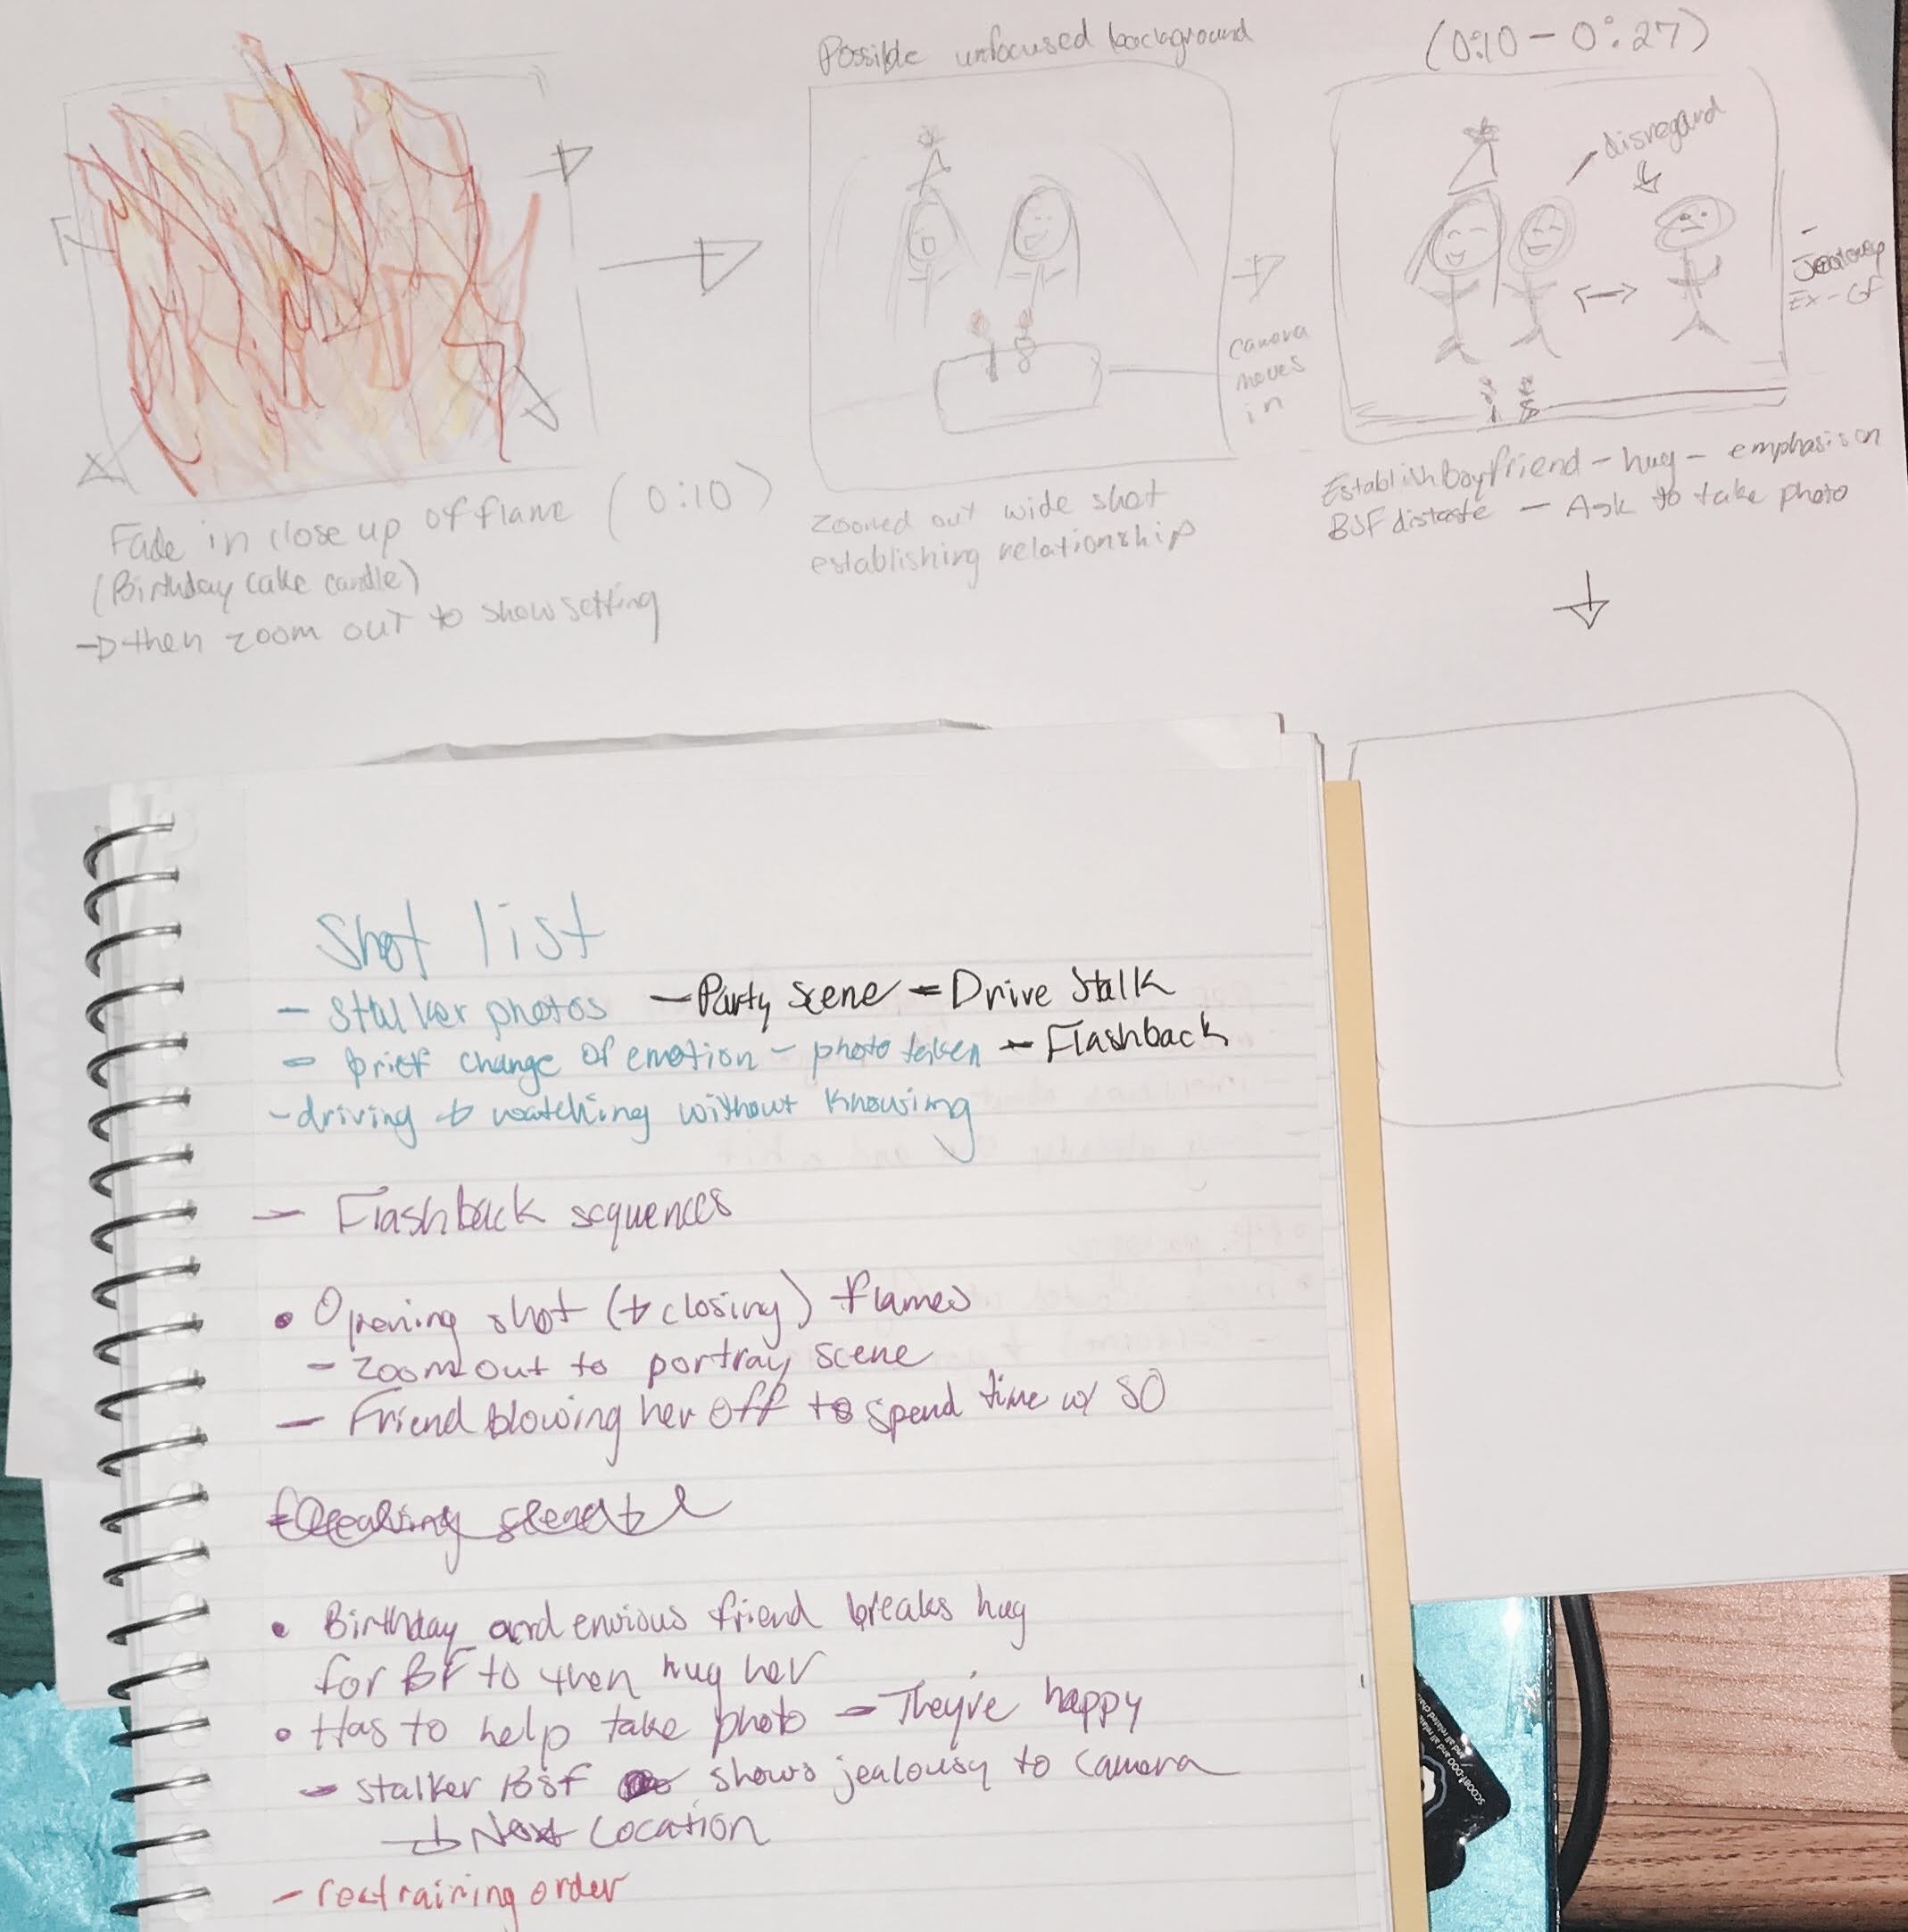 Possible unfocused background
(0:10 - 0:27)
disregard
Jealousy
Ex - GF
camera
moves
in
Fade in close up of flame (0:10)
(Birthday cake candle)
→ then zoom out to show setting
zoomed out wide shot
establishing relationship
Establish Boyfriend - hug - emphasis on
BSF distaste - Ask to take photo
Shot list
- Stalker photos - Party scene - Drive Stalk
- brief change of emotion - photo taken - Flashback
- driving + watching without knowing
- Flashback sequences
• Opening shot (+ closing) flames
- Zoom out to portray scene
- Friend blowing her off to spend time w/ SO
• Birthday and envious friend breaks hug
for BF to then hug her
• Has to help take photo - They're happy
- Stalker BSF shows jealousy to camera
→ Next Location
- restraining order